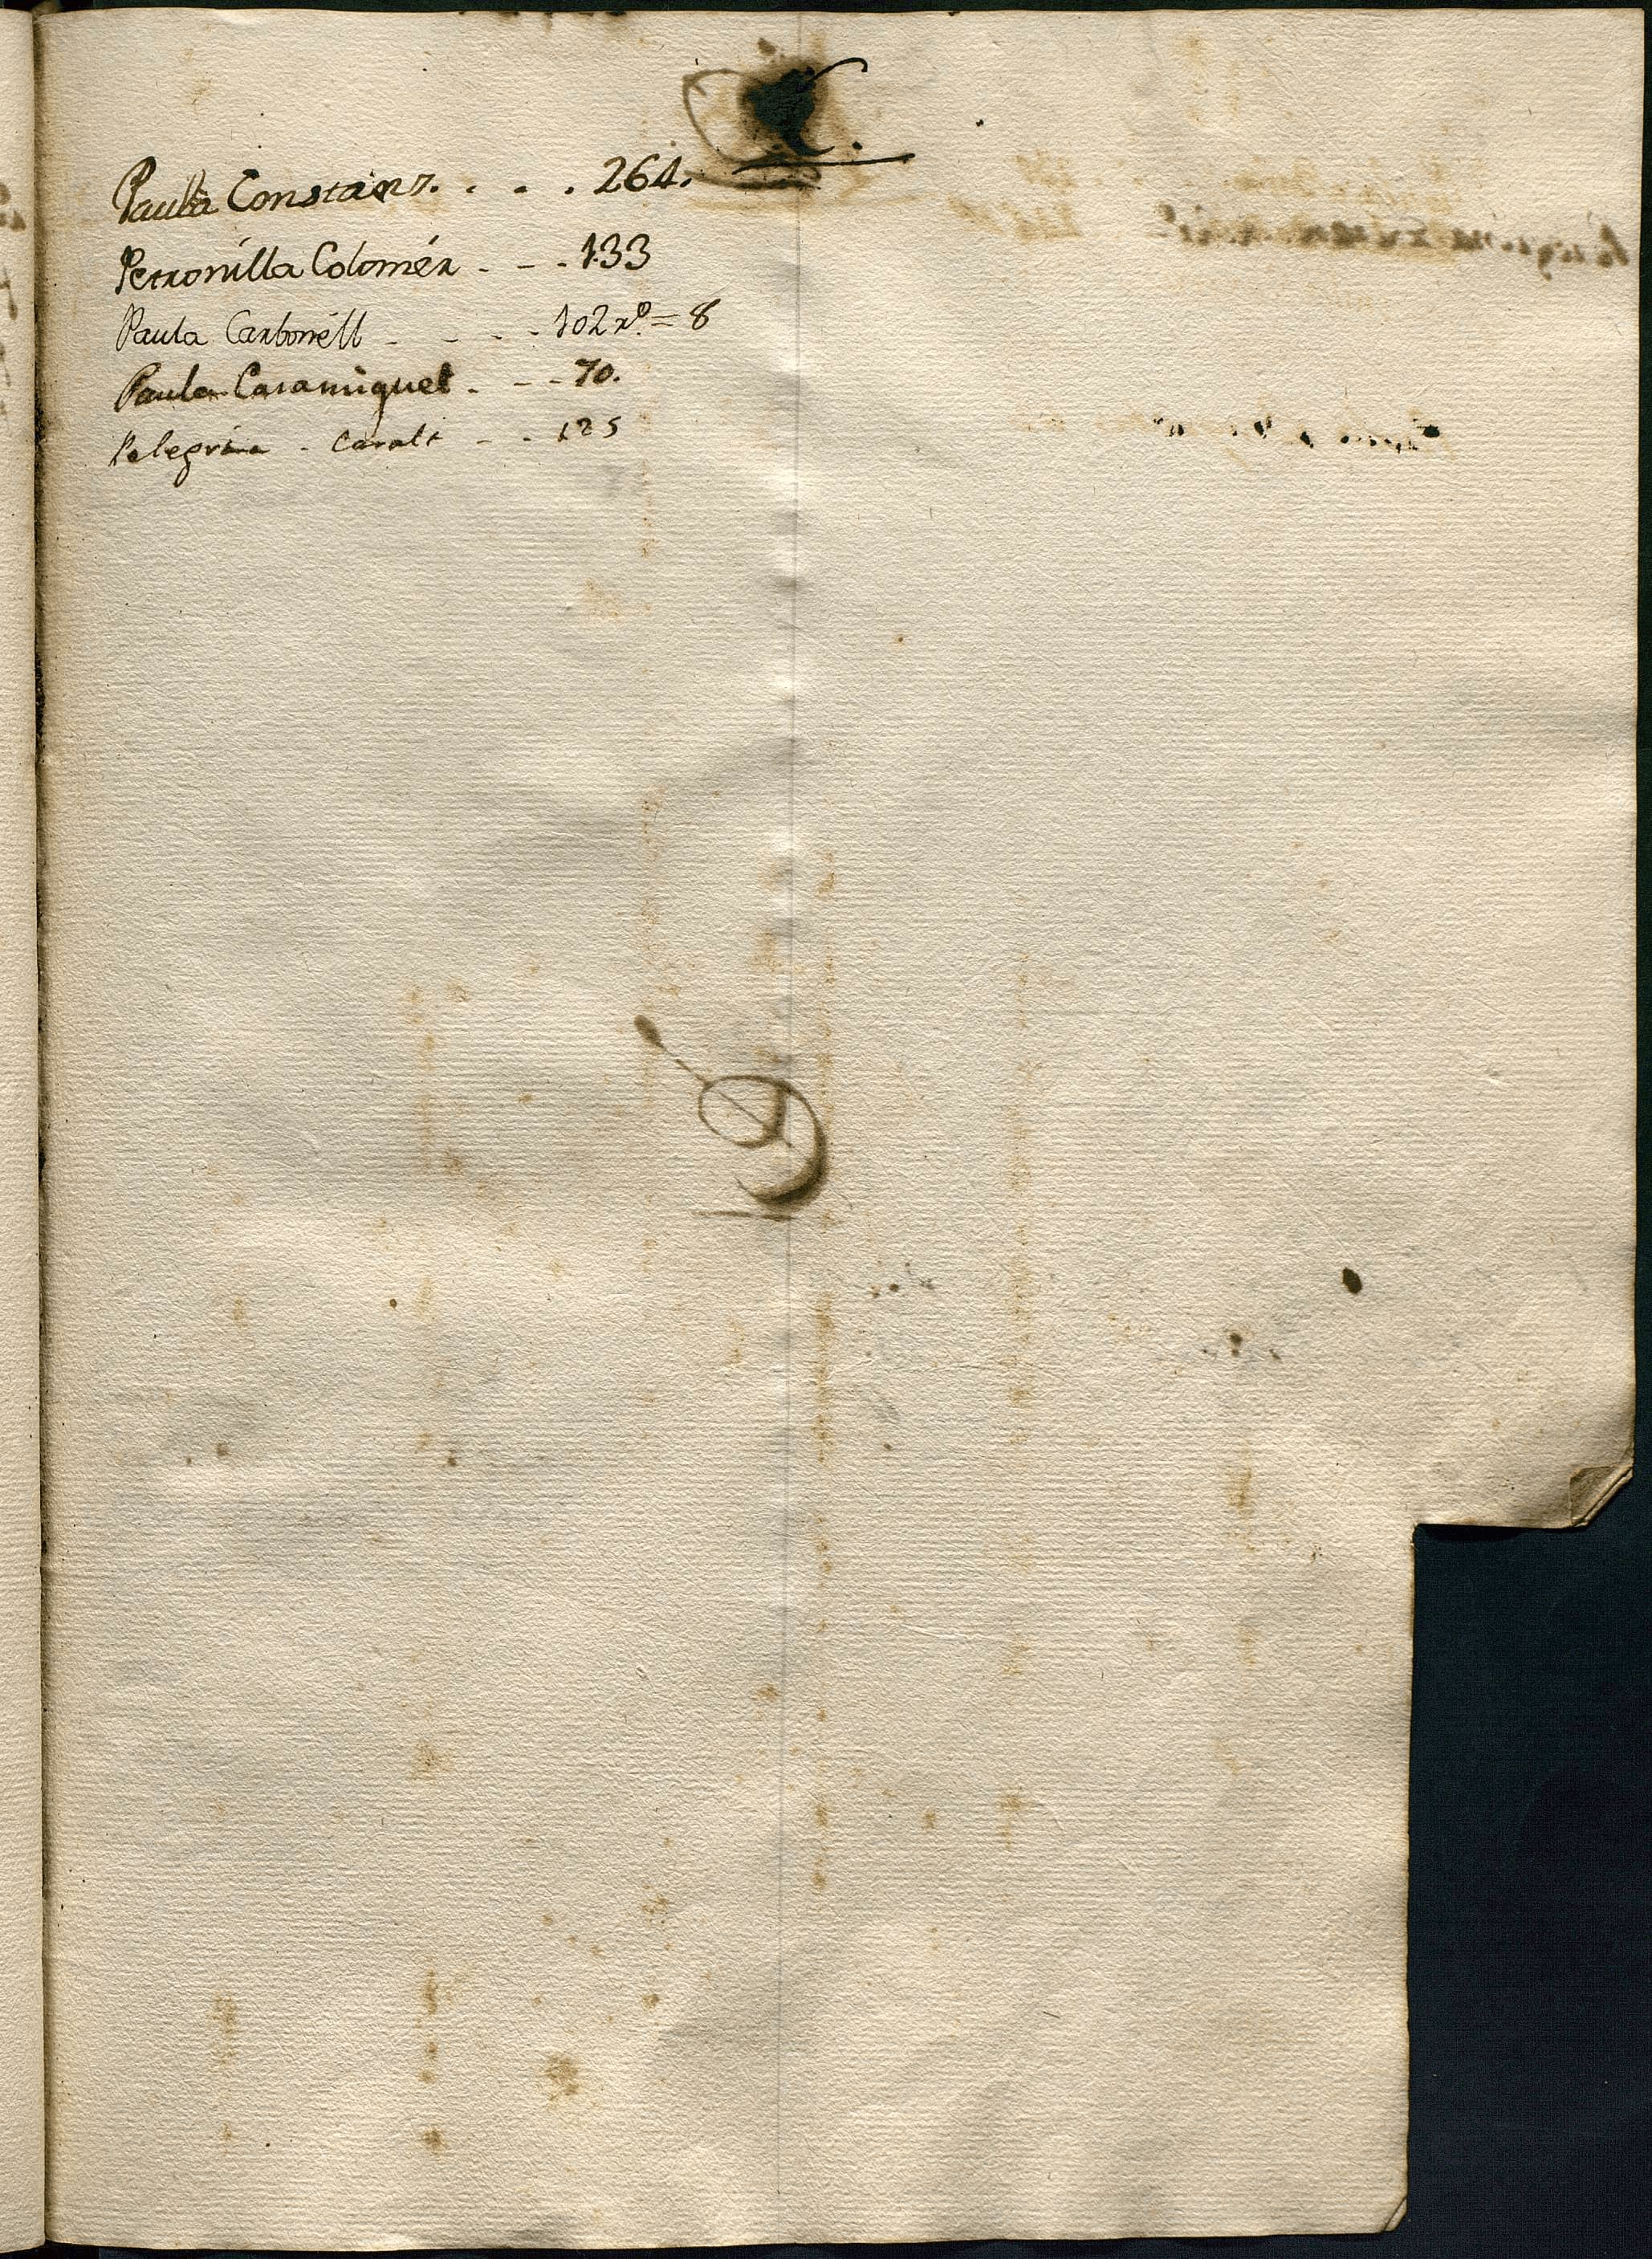 Paula Constans. . . . 264.
Petronilla Colomér - - . 133
Paula Carbonéll - - - - 102 rº = 8
Paula Casamiquel - - - 70.
Pelegrina - Casals - - 125